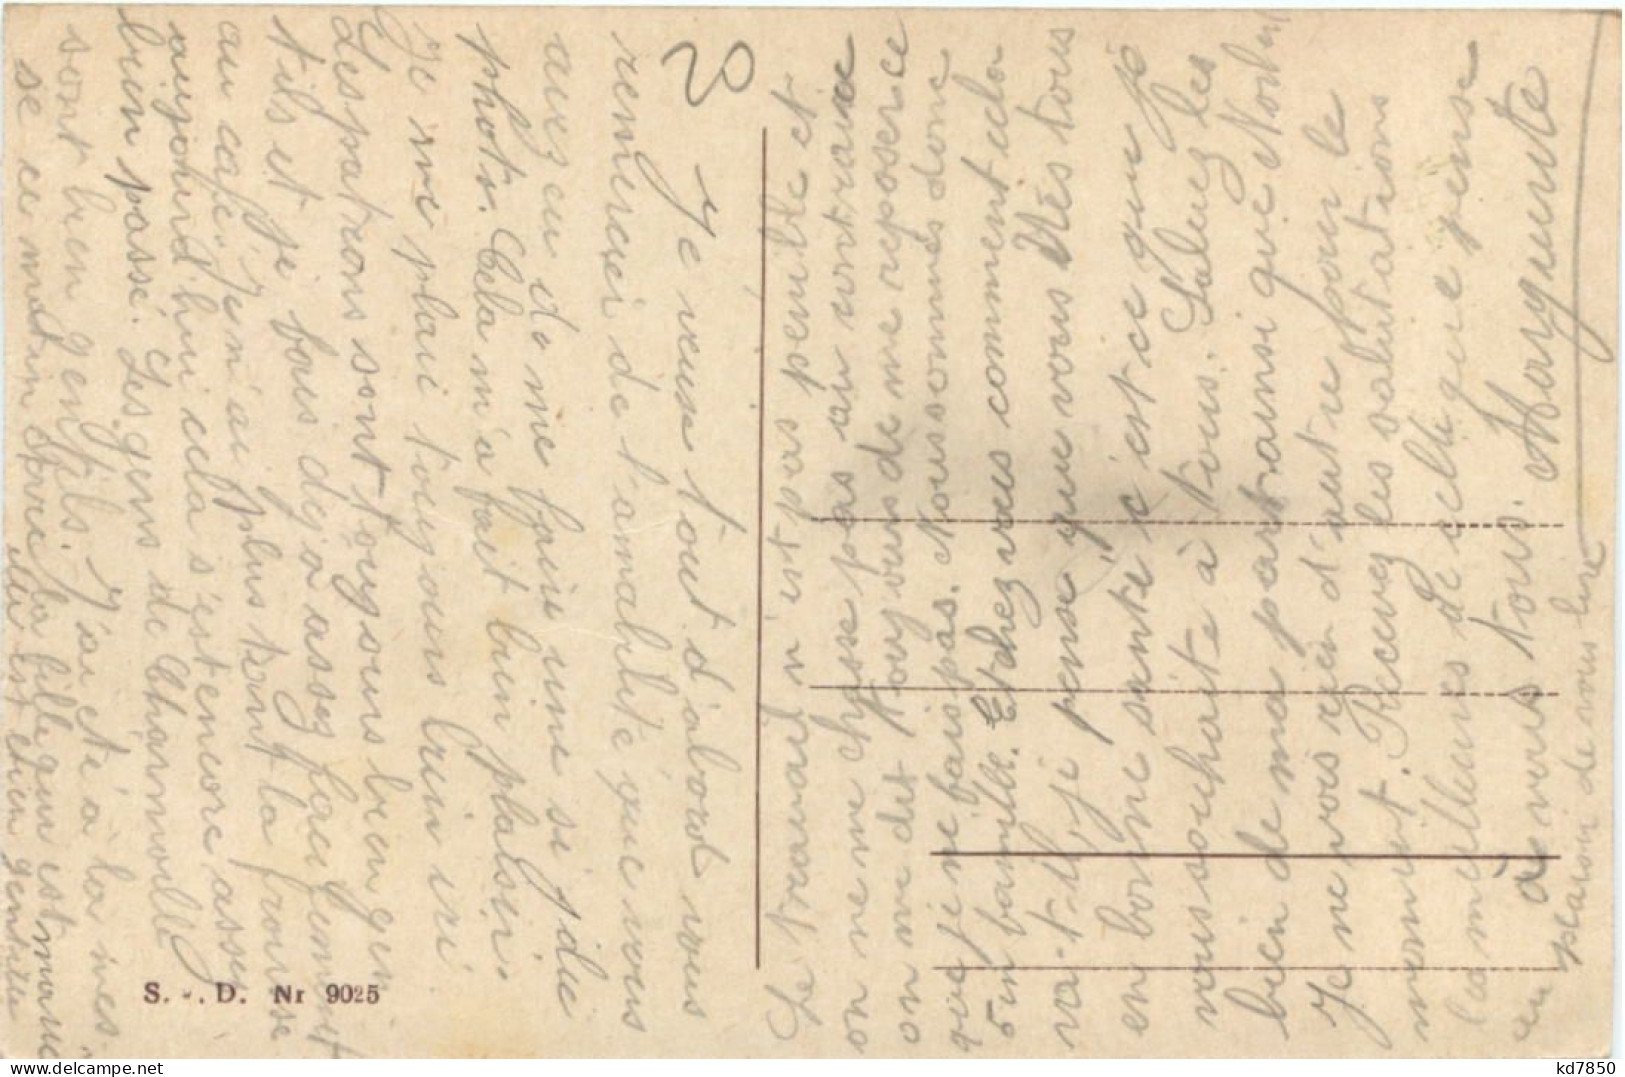 2
Je veux tout d'abord vous
remercier de l'amabilité que vous
avez eu de me faire une si jolie
photo. Cela m'a fait bien plaisir.
Je me plais toujours bien ici
Les patrons sont toujours bien gen
tils et je fais déjà assez facilement
au café. Je n'ai plus tant la frousse
aujourd'hui cela s'est encore assez
bien passé. Les gens de Charmoille
sont bien gentils. J'ai été à la mes
se ce matin avec la fille qui est
elle est bien gentille
Le travail n'est pas penible et
on ne me chasse pas au contraire
on me dit toujours de me reposer ce
que je ne fais pas. Nous sommes donc
5 en famille. Et chez vous comment cela
va-t-il, je pense que vous êtes tous
en bonne santé c'est ce que je
vous souhaite à tous. Saluez les
bien de ma part ainsi que
Je ne vois rien d'autre pour le
moment. Recevez les salutations
les meilleures de celle qui pense
à vous tous. Marguerite
au plaisir de vous lire
S. D. Nr 9025
kd7850